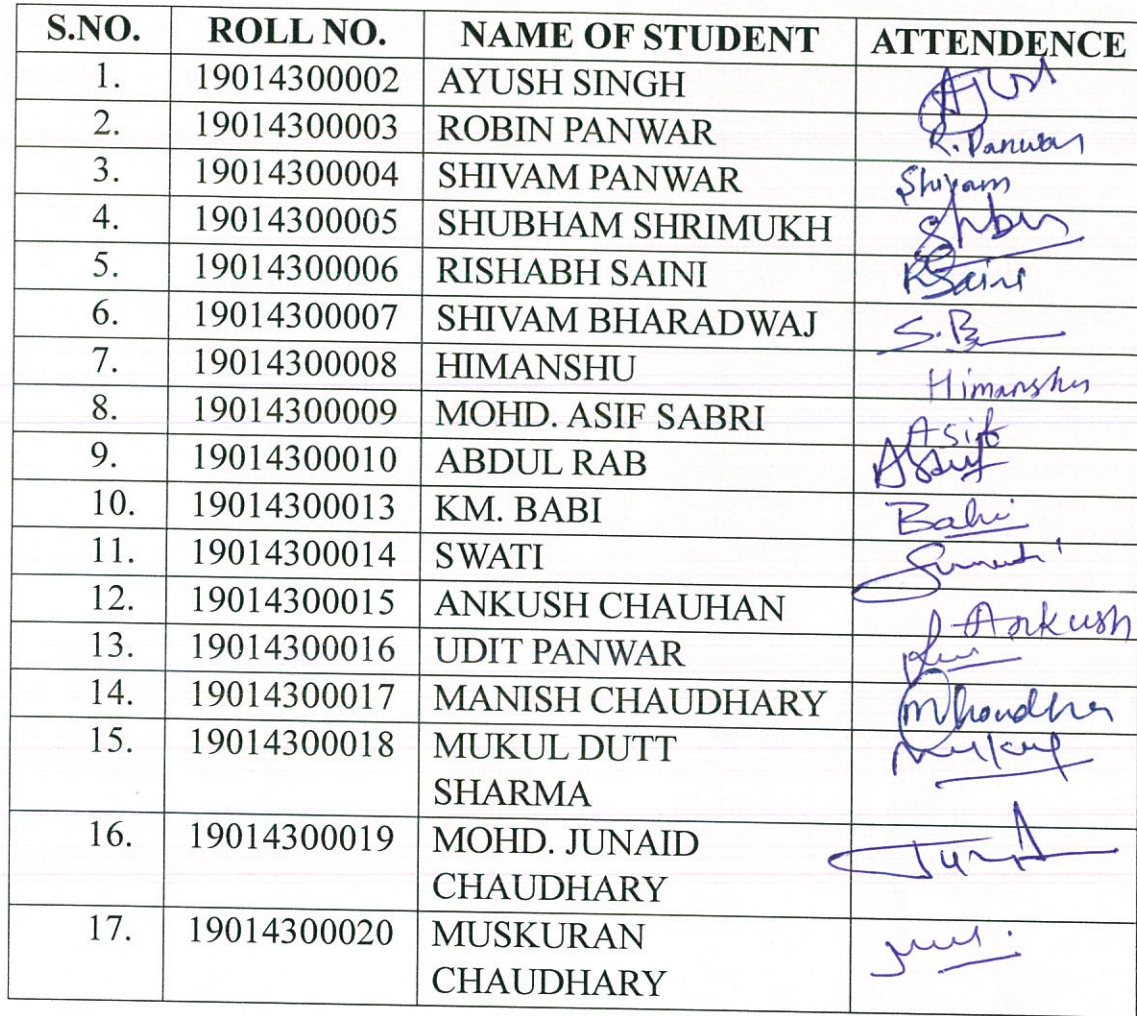 S.NO. ROLL NO. NAME OF STUDENT ATTENDENCE
1. 19014300002 AYUSH SINGH
2. 19014300003 ROBIN PANWAR R. Panwar
3. 19014300004 SHIVAM PANWAR Shivam
4. 19014300005 SHUBHAM SHRIMUKH
5. 19014300006 RISHABH SAINI RSaini
6. 19014300007 SHIVAM BHARADWAJ S.B
7. 19014300008 HIMANSHU Himanshu
8. 19014300009 MOHD. ASIF SABRI Asif
9. 19014300010 ABDUL RAB
10. 19014300013 KM. BABI Babi
11. 19014300014 SWATI
12. 19014300015 ANKUSH CHAUHAN Ankush
13. 19014300016 UDIT PANWAR
14. 19014300017 MANISH CHAUDHARY
15. 19014300018 MUKUL DUTT
SHARMA
16. 19014300019 MOHD. JUNAID
CHAUDHARY
17. 19014300020 MUSKURAN
CHAUDHARY